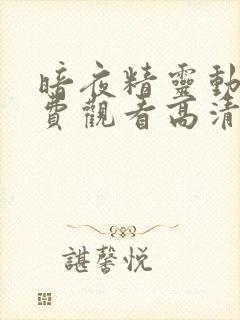 暗夜精靈動
費觀看高清
諶馨悦